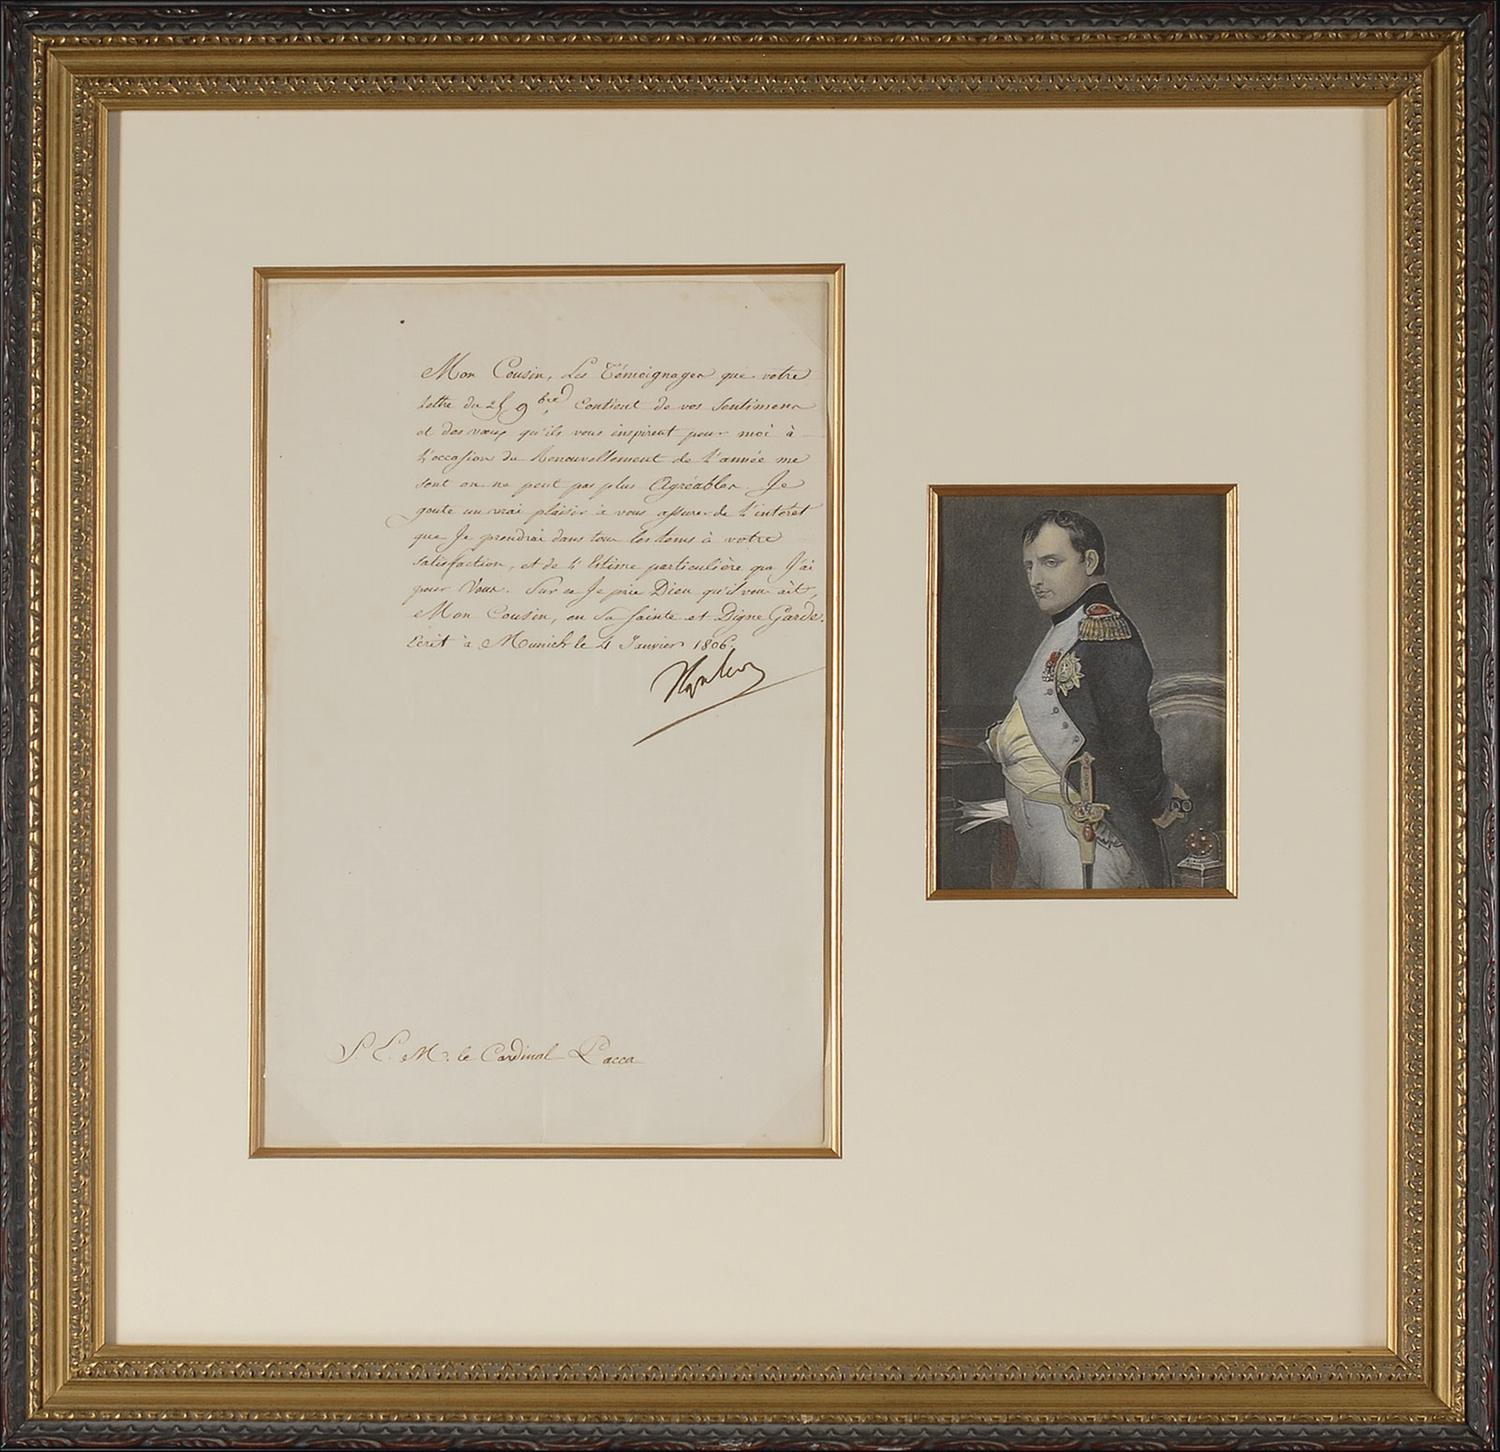 Mon Cousin, Les Témoignages que votre
lettre du 25 9bre, Contient de vos Sentimens
et des vœux qu'ils vous inspirent pour moi à
l'occasion du Renouvellement de l'année me
sont on ne peut pas plus Agréables. Je
goute un vrai plaisir à vous assurer de l'intéret
que Je prendrai dans tous les tems à votre
satisfaction, et de l'Estime particulière que J'ai
pour Vous. Sur ce Je prie Dieu qu'il vous ait,
Mon Cousin, en Sa Sainte et Digne Garde.
Ecrit à Munich le 4 Janvier 1806.
Napoleon
S. E. Mr. le Cardinal Pacca